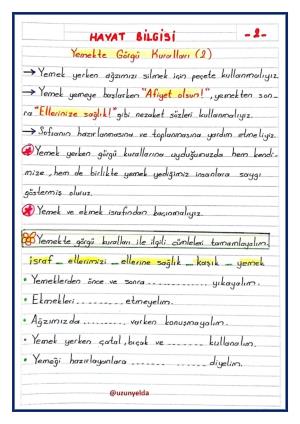 HAYAT BİLGİSİ -2-
Yemekte Görgü Kuralları (2)
→ Yemek yerken ağzımızı silmek için peçete kullanmalıyız.
→ Yemek yemeye başlarken "Afiyet olsun!", yemekten son-
ra "Ellerinize sağlık!" gibi nezaket sözleri kullanmalıyız.
→ Sofranın hazırlanmasına ve toplanmasına yardım etmeliyiz.
Yemek yerken görgü kurallarına uyduğumuzda hem kendi-
mize, hem de birlikte yemek yediğimiz insanlara saygı
göstermiş oluruz.
Yemek ve ekmek israfından kaçınmalıyız.
Yemekte görgü kuralları ile ilgili cümleleri tamamlayalım.
israf _ ellerimizi _ ellerine sağlık _ kaşık _ yemek
• Yemeklerden önce ve sonra .............. yıkayalım.
• Ekmekleri .............. etmeyelim.
• Ağzımızda .............. varken konuşmayalım.
• Yemek yerken çatal, bıçak ve .............. kullanalım.
• Yemeği hazırlayanlara .............. diyelim.
@uzunyelda